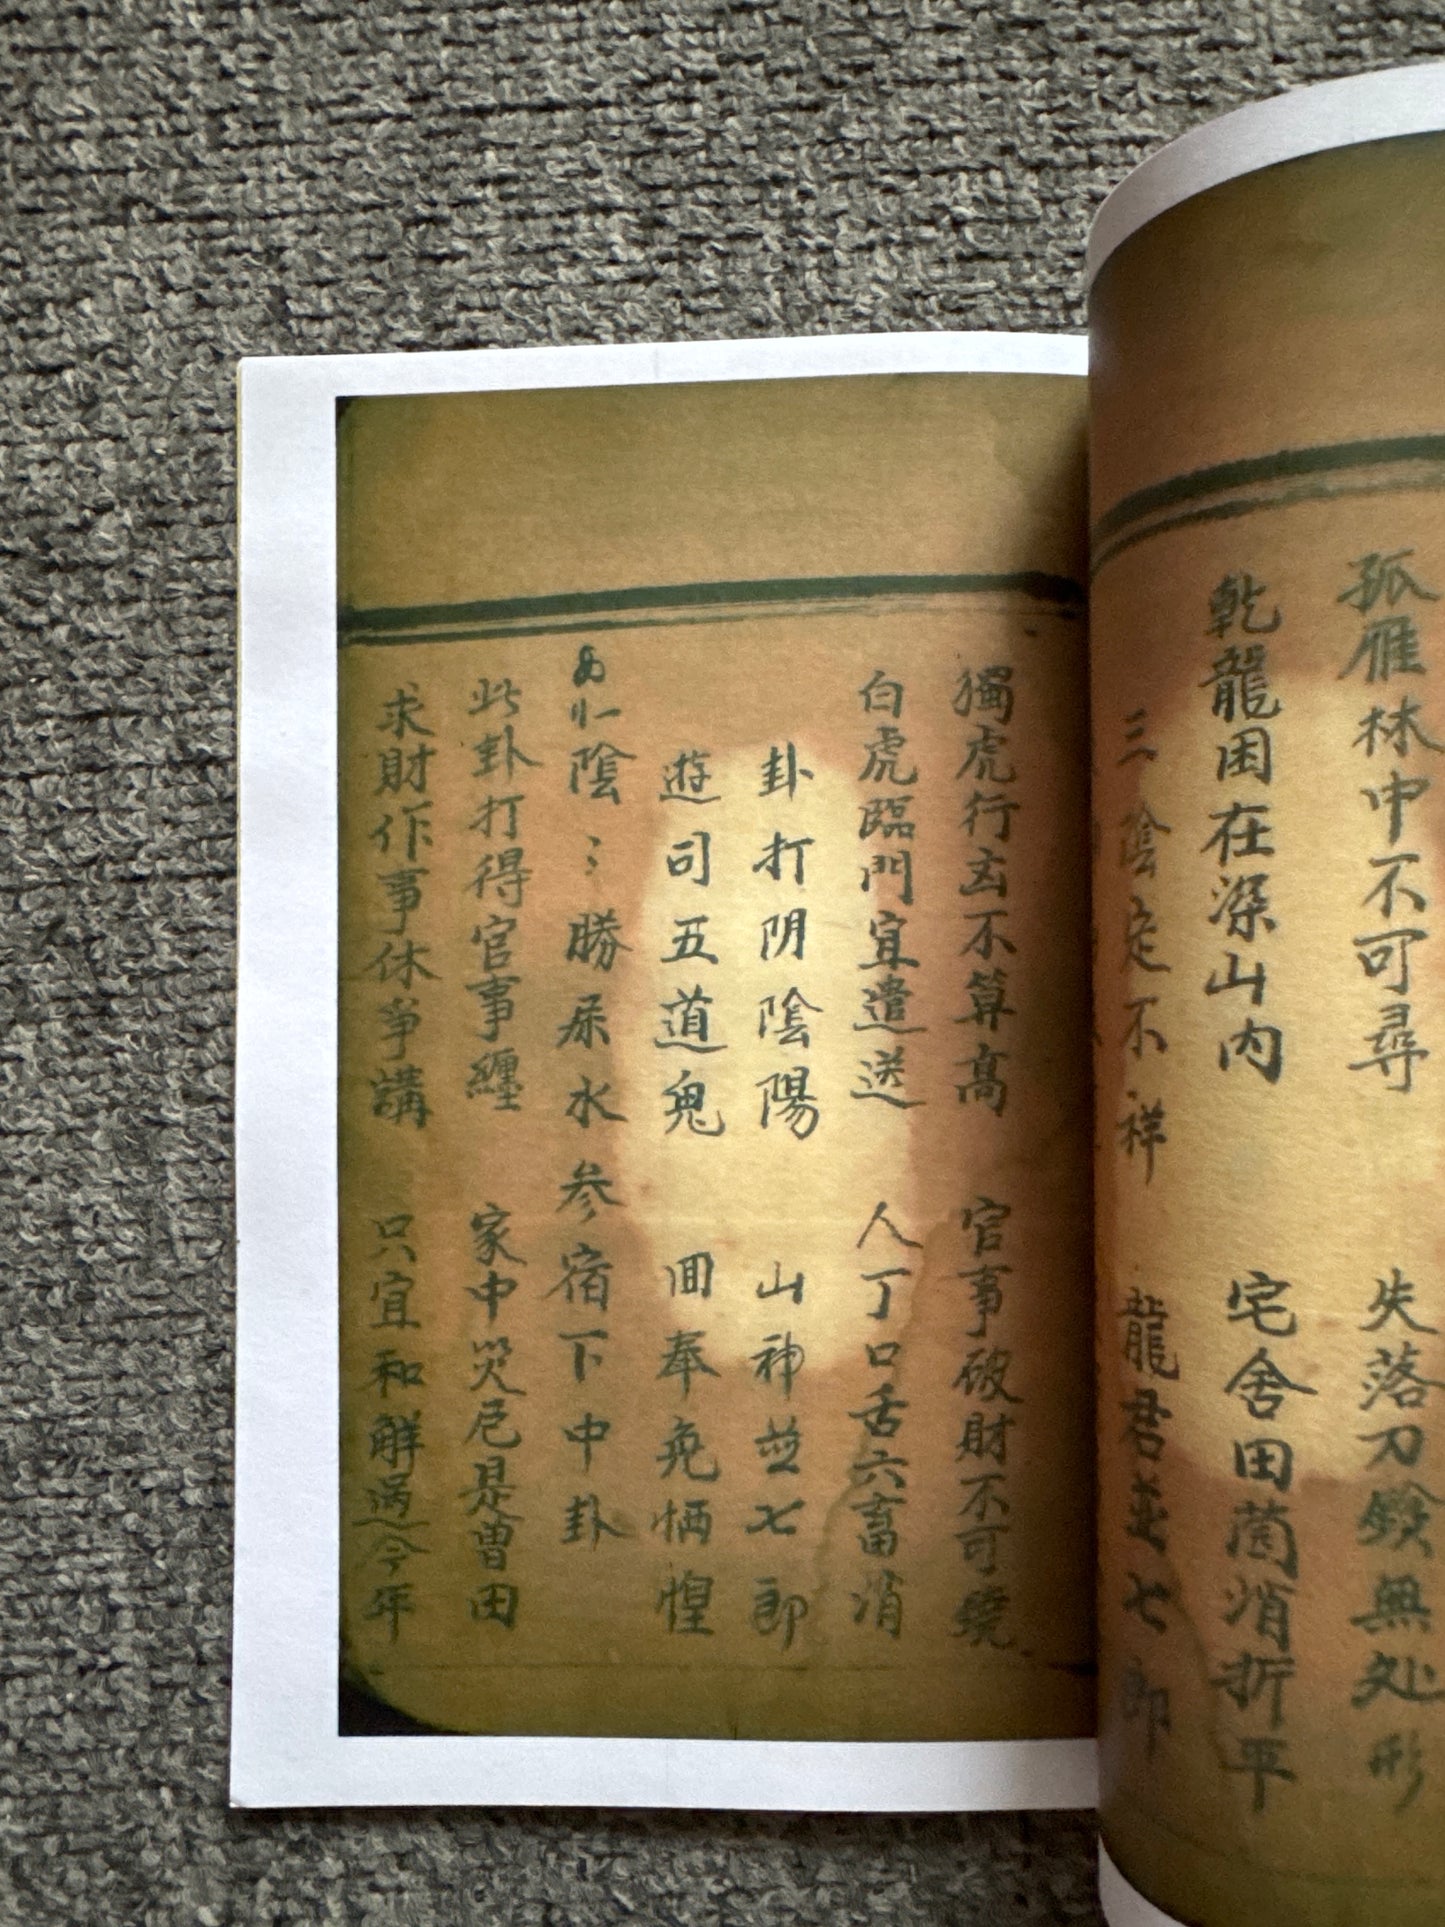 孤雁林中不可尋 失落刀鎗無处形
乾龍困在深山内 宅舍田茵消折平
三陰走不祥 龍君並七郎
獨虎行玄不算高 官事破財不可饒
白虎臨門宜遣送 人丁口舌六畜消
卦打阴陰陽 山神並七郎
遊司五道鬼 回奉免恓惶
陰〻勝 水 参宿下中卦
此卦打得官事纏 家中災危是曽田
求財作事休争講 只宜和解過今年